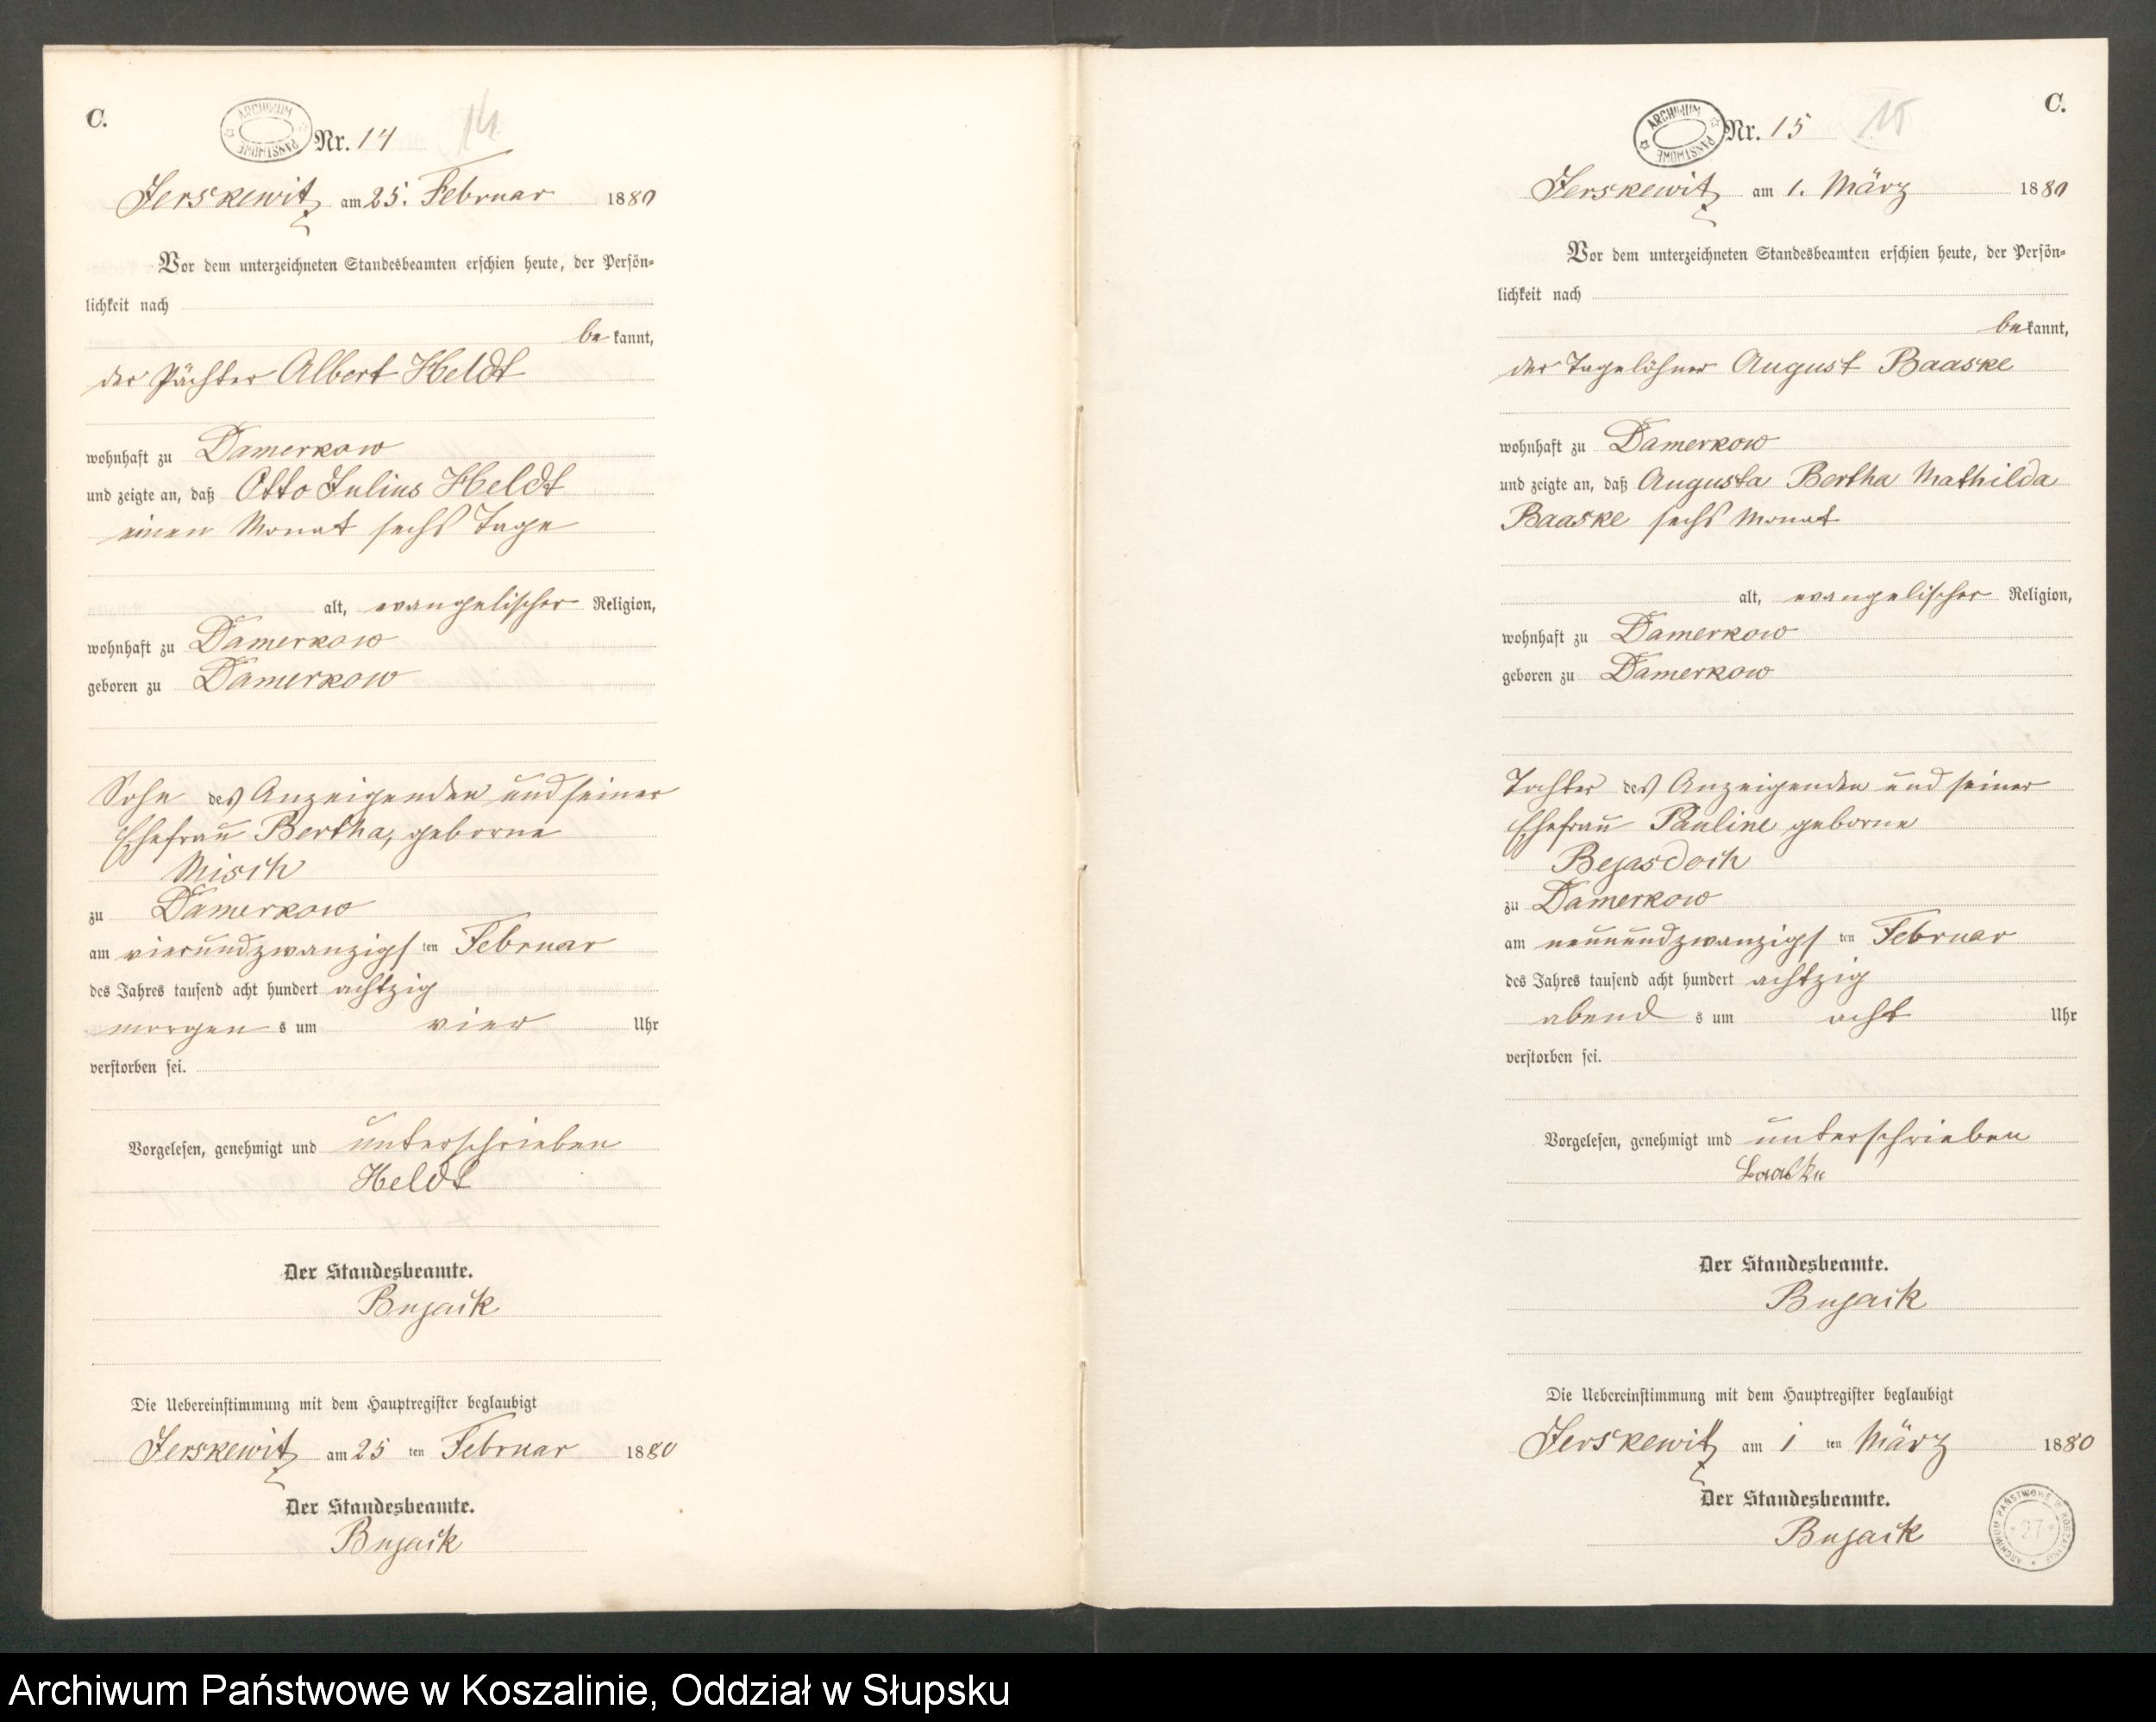 C.
ARCHIWUM PAŃSTWOWE
Nr. 14
14
Jerskewitz am 25. Februar 1880
Vor dem unterzeichneten Standesbeamten erschien heute, der Persön-
lichkeit nach
be kannt,
der Pächter Albert Heldt
wohnhaft zu Damerkow
und zeigte an, daß Otto Julius Heldt
einen Monat sechs Tage
alt, evangelischer Religion,
wohnhaft zu Damerkow
geboren zu Damerkow
Sohn des Anzeigenden und seiner
Ehefrau Bertha, geborne
Misch
zu Damerkow
am vierundzwanzigsten Februar
des Jahres tausend acht hundert achtzig
morgen s um vier Uhr
verstorben sei.
Vorgelesen, genehmigt und unterschrieben
Heldt
Der Standesbeamte.
Bujack
Die Uebereinstimmung mit dem Hauptregister beglaubigt
Jerskewitz am 25 ten Februar 1880
Der Standesbeamte.
Bujack
C.
ARCHIWUM PAŃSTWOWE
Nr. 15
15
Jerskewitz am 1. März 1880
Vor dem unterzeichneten Standesbeamten erschien heute, der Persön-
lichkeit nach
bekannt,
der Tagelöhner August Baaske
wohnhaft zu Damerkow
und zeigte an, daß Augusta Bertha Mathilda
Baaske sechs Monat
alt, evangelischer Religion,
wohnhaft zu Damerkow
geboren zu Damerkow
Tochter des Anzeigenden und seiner
Ehefrau Pauline geborne
Bejasdoch
zu Damerkow
am neunundzwanzigsten Februar
des Jahres tausend acht hundert achtzig
abend s um acht Uhr
verstorben sei.
Vorgelesen, genehmigt und unterschrieben
Baaske
Der Standesbeamte.
Bujack
Die Uebereinstimmung mit dem Hauptregister beglaubigt
Jerskewitz am 1 ten März 1880
Der Standesbeamte.
Bujack
ARCHIWUM PAŃSTWOWE W KOSZALINIE
27
Archiwum Państwowe w Koszalinie, Oddział w Słupsku